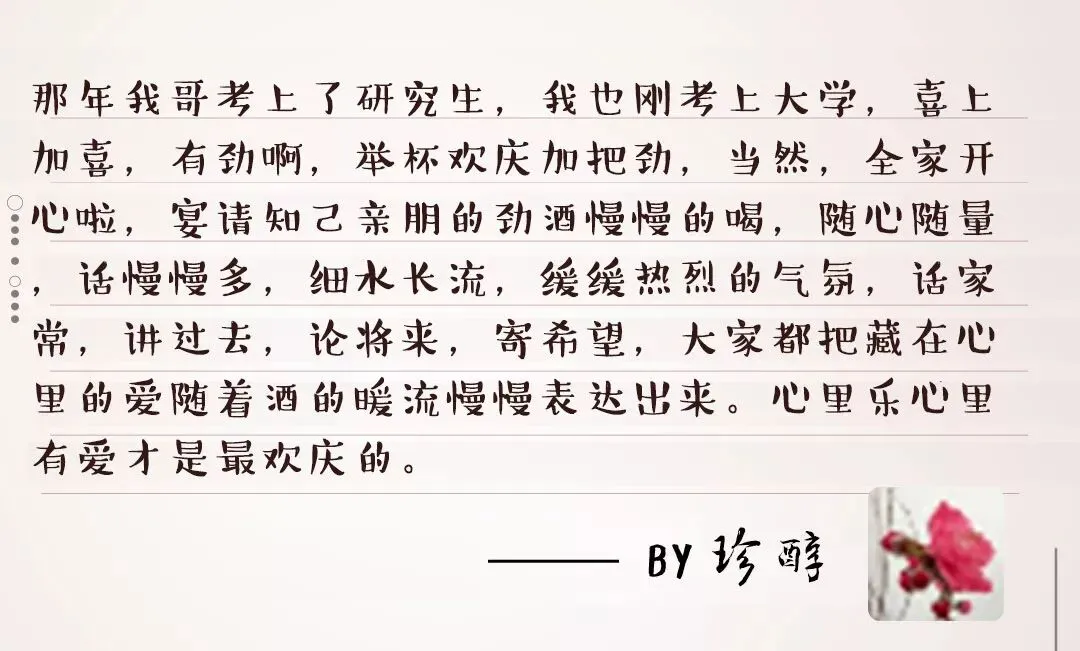 那年我哥考上了研究生，我也刚考上大学，喜上
加喜，有劲啊，举杯欢庆加把劲，当然，全家开
心啦，宴请知己亲朋的劲酒慢慢的喝，随心随量
，话慢慢多，细水长流，缓缓热烈的气氛，话家
常，讲过去，论将来，寄希望，大家都把藏在心
里的爱随着酒的暖流慢慢表达出来。心里乐心里
有爱才是最欢庆的。
—— BY 珍醇